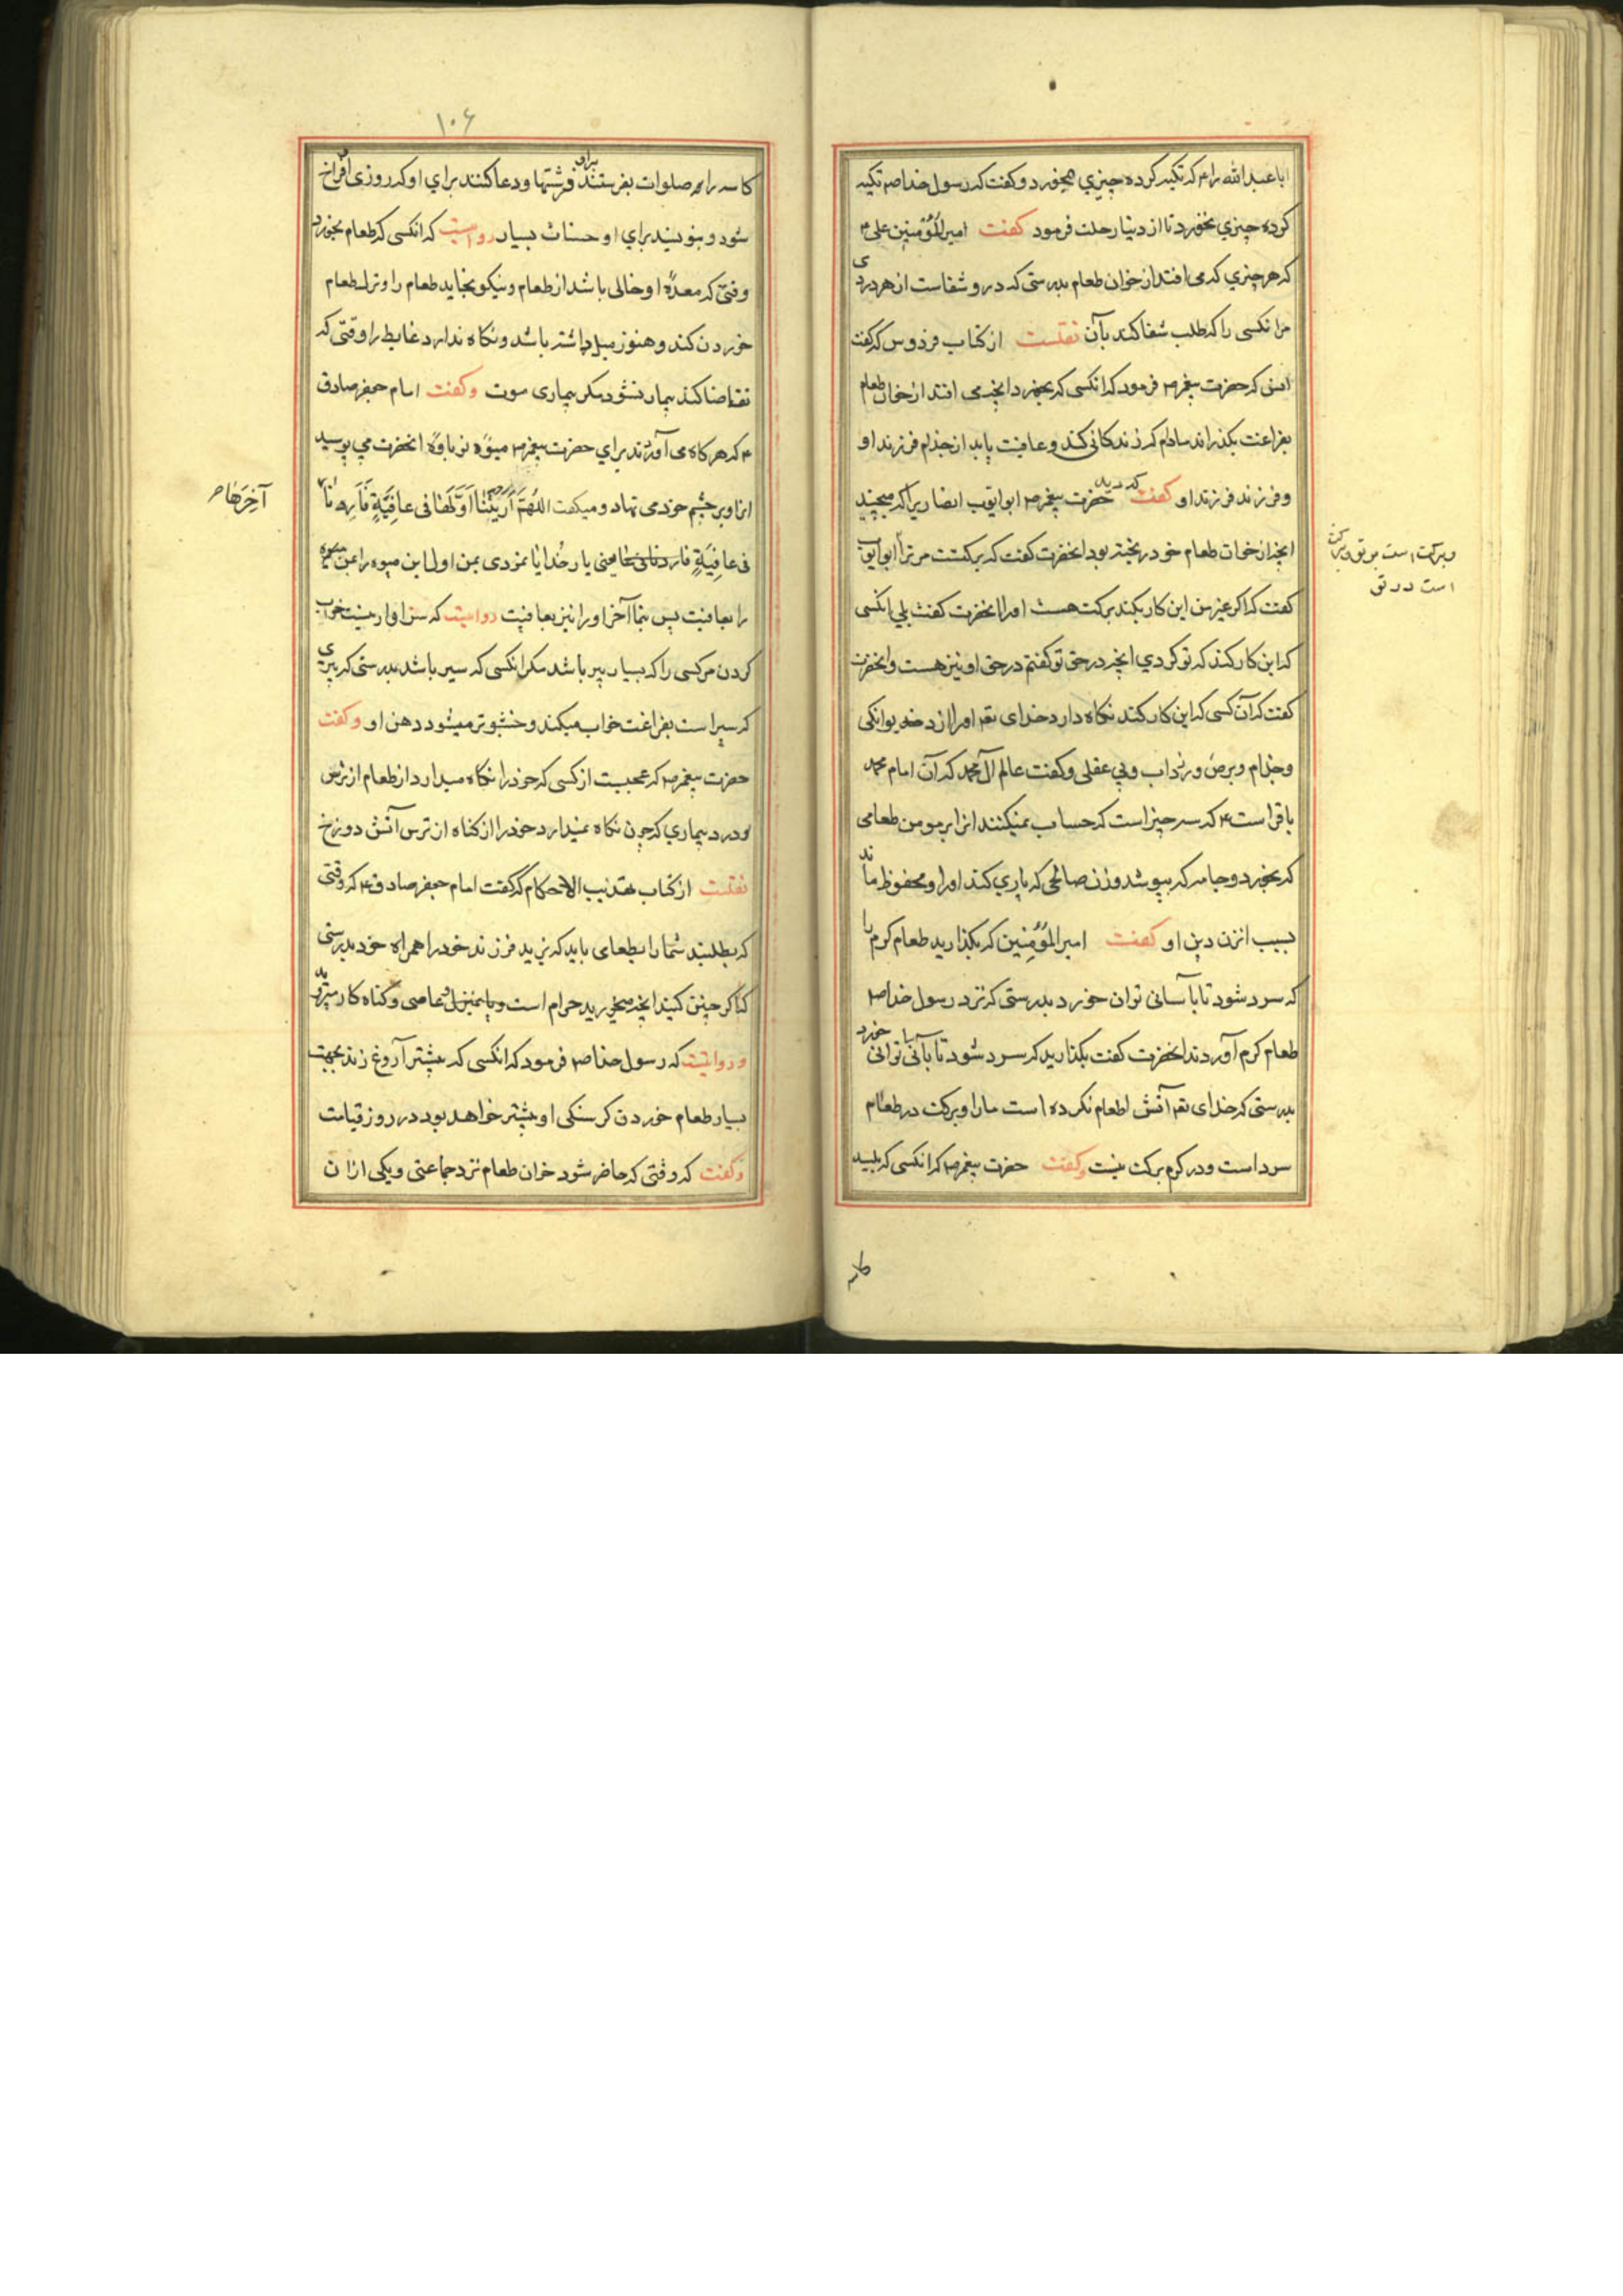 ابا عبد الله را ع م که تکیه کرده چیزی میخورد و گفت که رسول خدا صم تکیه
کرده چیزی نخورد تا از دنیا رحلت فرمود گفت امیر المؤمنین علی ع م
که هر چیزی که می افتد از خوان طعام بدرستی که درو شفاست از هر دردی
مر انکسی را که طلب شفا کند بآن نقلست از کتاب فردوس که گفت
انس که حضرت پیغمبر ص م فرمود که انکسی که بخورد انچه می افتد از خوان طعام
بفراغت بگذراند مادام که زندگانی کند و عافیت یابد از جذام فرزند او
و فرزند فرزند او گفت که دید حضرت پیغمبر ص م ابو ایوب انصاری را که میچیند
انچه از خوان طعام خود ریخته بود انحضرت گفت که برکتست مر ترا ابو ایوب
گفت که اگر غیر من این کار بکند برکت هست او را انحضرت گفت بلی انکسی
که این کار کند که تو کردی انچه در حق تو گفتم در حق او نیز هست و انحضرت
گفت که آن کسی که این کار کند نگاه دارد خدای تع م او را از دیوانکی
و جذام و برص و زرداب و بی عقلی و گفت عالم آل محمد که آن امام محمد
باقر است ع م که سه چیز است که حساب نمیکنند انرا بر مومن طعامی
که بخورد و جامه که بپوشد و زن صالحی که یاری کند او را و محفوظ ماند
بسبب انزن دین او گفت امیر المؤمنین که بگذارید طعام کرم را
که سرد شود تا بآسانی توان خورد بدرستی که نزد رسول خدا ص م
طعام کرم آوردند انحضرت گفت بگذارید که سرد شود تا بآسانی توانی خورد
بدرستی که خدای تع م آتش اطعام نکرده است ما را و برکت در طعام
سرد است و در کرم برکت نیست و گفت حضرت پیغمبر ص م که انکسی که بلیسد
وبرکت است بر تو وبرکت
است در تو
کاسه
۱۰۶
کاسه را صلوات بفرستند برای او فرشتها و دعا کنند برای او که روزی او فراخ
شود و بنویسند برای او حسنات بسیار روایت که انکسی که طعام بخورد
وقتی که معدۀ او خالی باشد از طعام و نیکو بخاید طعام را و ترک طعام
خوردن کند و هنوز میل داشته باشد و نگاه ندارد غایط را وقتی که
تقاضا کند بیمار نشود مکر بیماری موت و گفت امام جعفر صادق
ع م که هرکاه می آوردند برای حضرت پیغمبر ص م میوۀ نو باوۀ انحضرت می بوسید
انرا و بر چشم خود می نهاد و میکفت اللهم اریتنا اولها فی عافیة فارنا
آخرها ص
فی عافیة یعنی بار خدایا نمودی بمن اول این میوه را بمن
را بعافیت پس بنما آخر او را نیز بعافیت روایت که سزاوار نیست خواب
کردن مر کسی را که بسیار پیر باشد مکر انکسی که سیر باشد بدرستی که پیری
که سیر است بفراغت خواب میکند و خشبوتر میشود دهن او و گفت
حضرت پیغمبر ص م که عجبیت از کسی که خود را نگاه میدارد از طعام از ترس
و درد بیماری که چون نگاه نمیدارد خود را از کناه از ترس آتش دوزخ
نقلست از کتاب تهذیب الاحکام که گفت امام جعفر صادق ع م که وقتی
که بطلبند شما را بطعامی باید که نبرید فرزند خود را همراه خود بدرستی
که اگر چنین کنید انچه میخورید حرام است و عاصی و کناه کار میروید
و روایتست که رسول خدا ص م فرمود که انکسی که بیشتر آروغ زند بجهت
بسیار طعام خوردن کرسنکی او بیشتر خواهد بود در روز قیامت
و گفت که وقتی که حاضر شود خوان طعام نزد جماعتی و یکی ازان